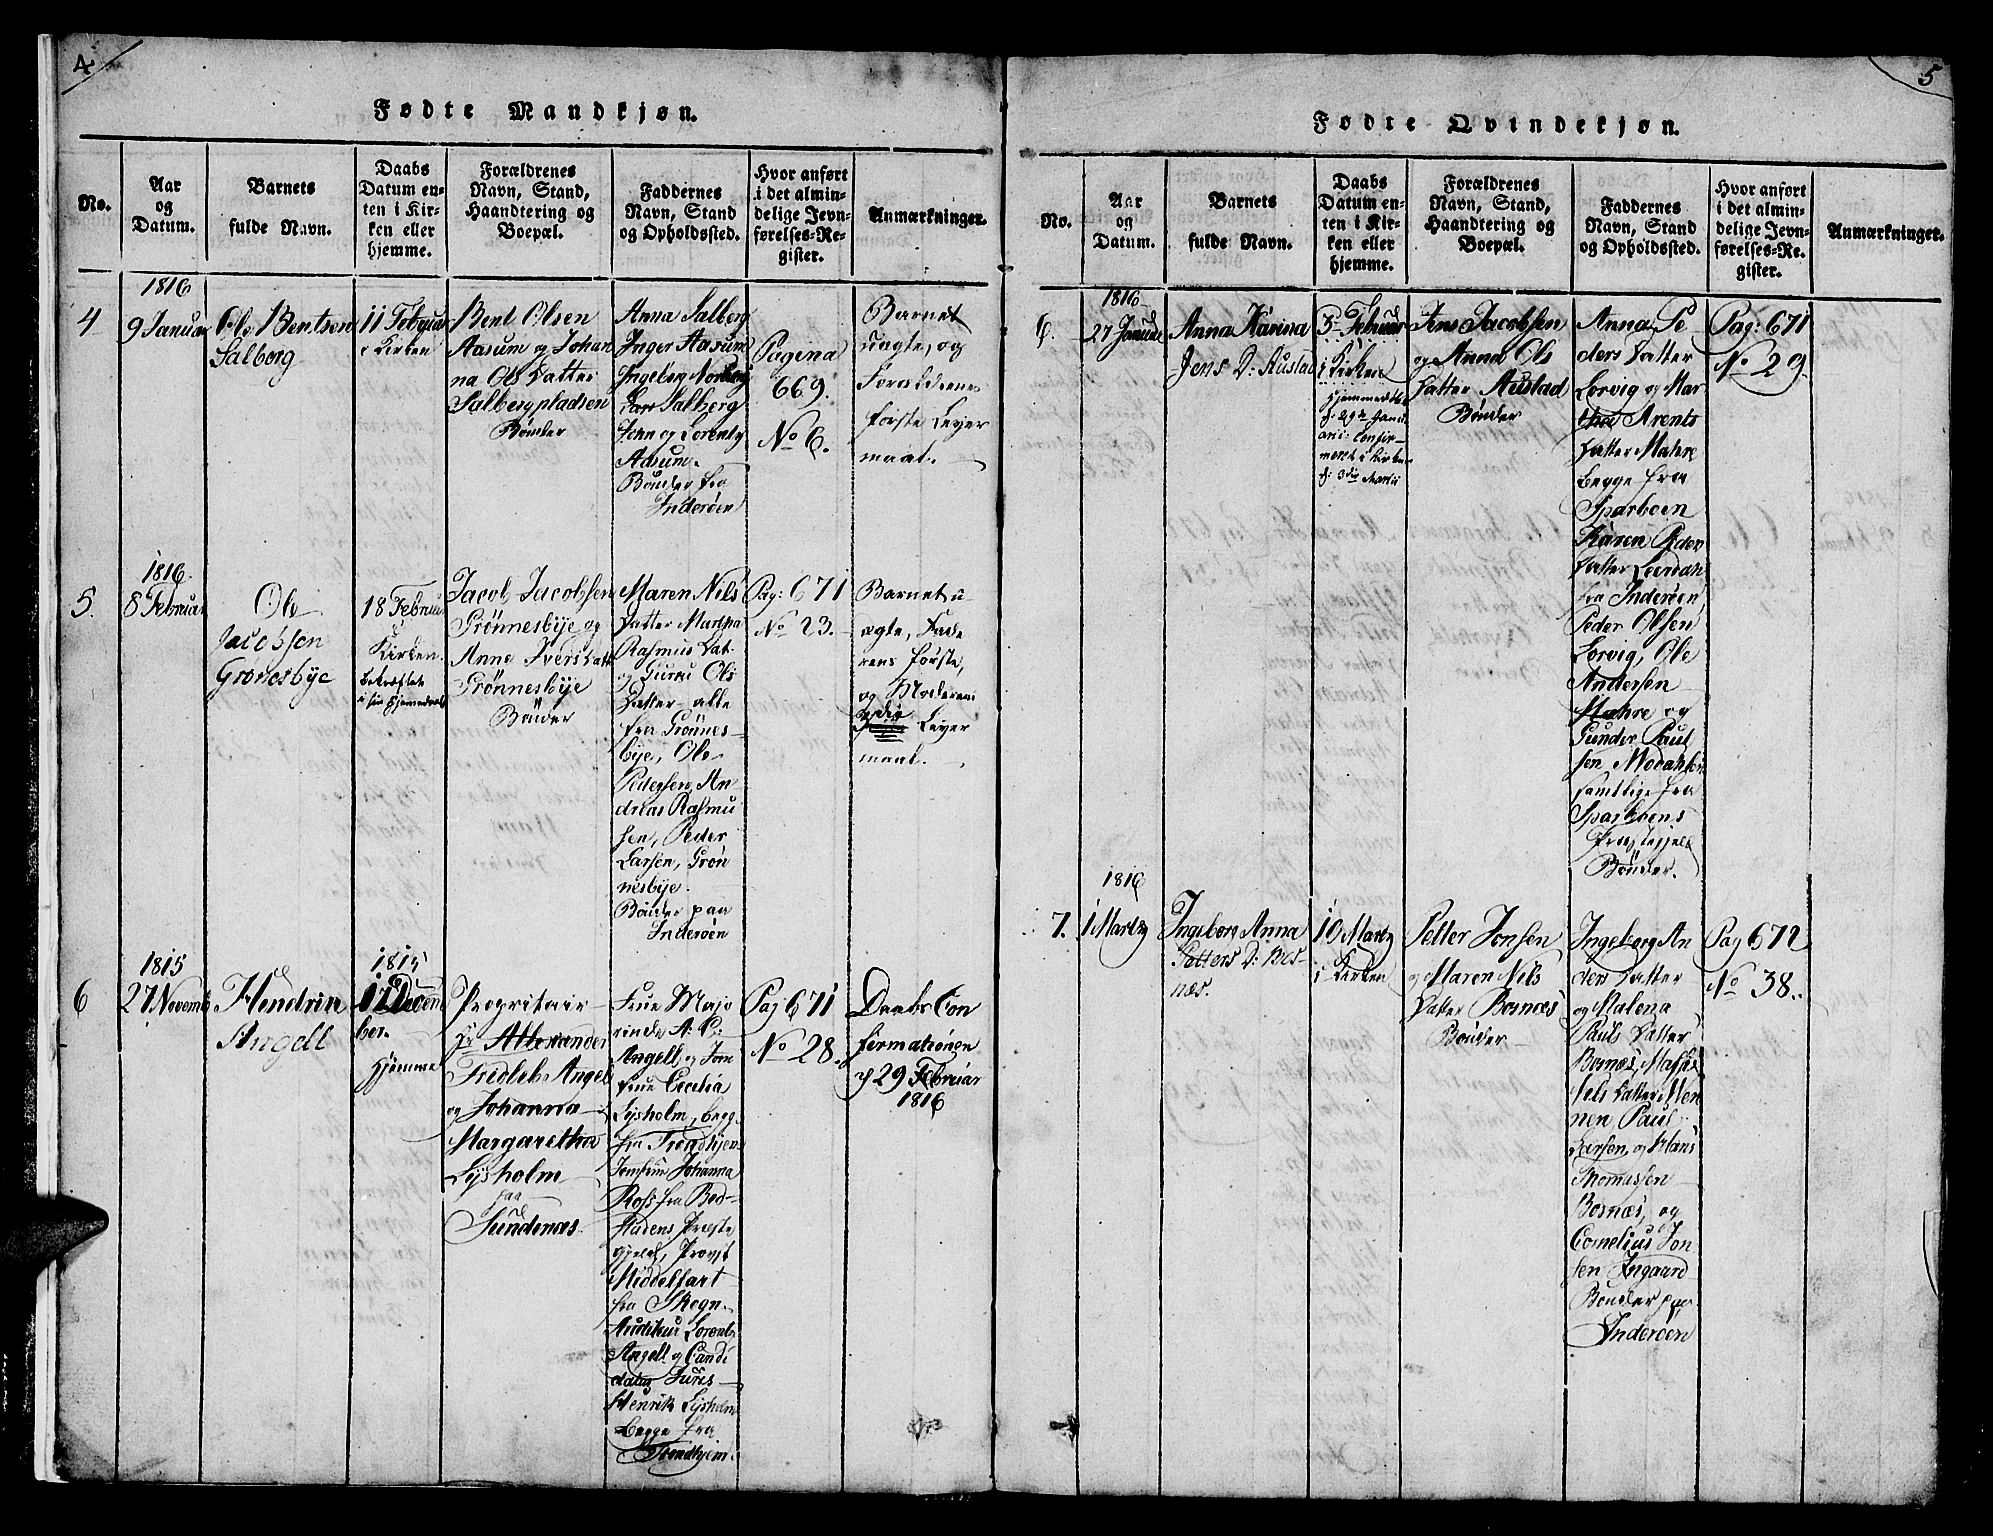 4
Fødte Mandkjøn.
No.
Aar
og
Datum.
Barnets
fulde Navn.
Daabs
Datum en-
ten i Kir-
ken eller
hjemme.
Forældrenes
Navn, Stand,
Haandtering og
Boepæl.
Faddernes
Navn, Stand
og Opholdssted.
Hvor anført
i det almin-
delige Jevn-
førelses-Re-
gister.
Anmærkninger.
4
1816
9 Januar
Ole Bentsen
Salberg
11 Februar
i Kirken
Bent Olsen
Aasum og Johan
na Ols Datter
Salbergpladsen
Bønder
Anna Salberg
Inger Aasum
Ingeberg Norberg
Lars Salberg
John og Lorentz
Aasum.
Bønder fra
Inderøen
Pagina
669.
No 6.
Barnet
uægte, og
Forældrenes
første Leyer
maal.
5.
1816.
8 Februar
Ole
Jacobsen
Grønesbye
18 Februar
Kirken.
bekræftet
i sin Hjemmedaab
Jacob Jacobsen
Grønnesbye og
Anne Iversdatt
Grønnesbye
Bønder
Maren Nils
Datter Martha
Rasmus Dat.
og Guru Ols
Datter alle
fra Grønnes-
bye, Ole
Pedersen, An
dreas Rasmu
sen, Peder
Larsen, Grøn
nesbye.
Bønder paa
Inderøen
Pag: 671
No 23.
Barnet u-
ægte, Fade
rens første,
og Moderens
3die Leyer
maal.
6
1815
27 Novemb
Hendrik
Angell
1815
17 Decem
ber.
Hjemme
Propritair
Hr Allexander
Fridleb Angel
og Johanna
Margaretha
Lysholm
paa
Sundnæs.
Frue Majo
rinde A: C:
Angell og Jom
frue Cecilia
Lysholm, begge
fra Trondhjem
Jomfrue Johanna
Ross fra Bod-
stadens Præste
gjeld, Provst
Middelfart
fra Skogn.
Auditeur Lorentz
Angell og Candi
datus Jures
Henrik Lysholm
begge fra
Trondhjem.
Pag 671
No 28.
Daabs Con
firmationen
d 29 Februar
1816
5
Fødte Qvindekjøn.
No.
Aar
og
Datum.
Barnets
fulde Navn.
Daabs
Datum en-
ten i Kir-
ken eller
hjemme.
Forældrenes
Navn, Stand,
Haandtering og
Boepæl.
Faddernes
Navn, Stand
og Opholdssted.
Hvor anført
i det almin-
delige Jevn-
førelses-Re-
gister.
Anmærkninger.
6.
1816
27 Januar
Anna Karina
Jens D: Austad
3 Februar
i Kirken
Hjemmedøbt
d: 29de Janu
ari: Confir-
meret i Kirken
d: 3die Martii
Jens Jacobsen
og Anna Ols
Datter Austad
Bønder
Anna Pe
ders Datter
Lorvig og Mar
tha Arents
Datter Mahre
begge fra
Sparboen
Karen Peder
Datter Leerdah
fra Inderøen
Peder Olsen
Lorvig, Ole
Andersen
Mahre og
Gunder Paul
sen
samtlige fra
Sparboens
Præstegjeld
Bønder.
Pag: 671
No 29.
7.
1816
1 Martz
Ingeborg Anna
Petters D: Bos-
næs.
10 Martz
i Kirken
Petter Jonsen
og Maren Nils
Datter Bosnæs
Bønder
Ingeborg An
ders Datter
og Malena
Pauls Datter
Bosnæs,
Nils Datter Men
nen Paul
Larsen og Hans
Thomassen
Bosnæs, og
Cornelius Jon
sen Ingaard
Bønder paa
Inderøen
Pag 672
No 38.